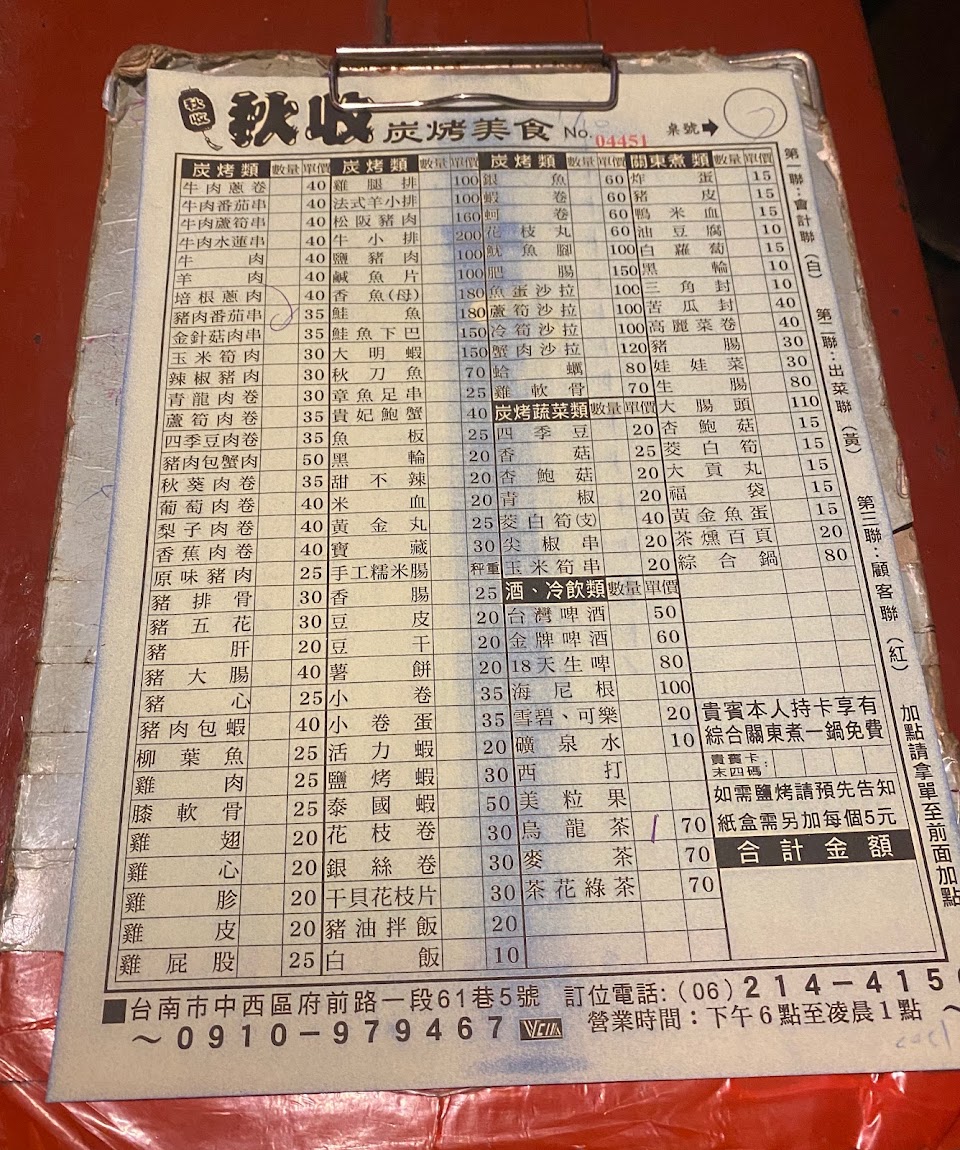 秋收
秋收 炭烤美食 No. 04451 桌號➡
炭烤類 數量 單價
牛肉蔥卷 40
牛肉番茄串 40
牛肉蘆筍串 40
牛肉水蓮串 40
牛肉 40
羊肉 40
培根蔥肉 40
豬肉番茄串 35
金針菇肉串 35
玉米筍肉 30
辣椒豬肉 30
青龍肉卷 30
蘆筍肉卷 35
四季豆肉卷 35
豬肉包蟹肉 50
秋葵肉卷 35
葡萄肉卷 40
梨子肉卷 40
香蕉肉卷 40
原味豬肉 25
豬排骨 30
豬五花 30
豬肝 20
豬大腸 40
豬心 25
豬肉包蝦 40
柳葉魚 25
雞肉 25
膝軟骨 25
雞翅 20
雞心 20
雞胗 20
雞皮 20
雞屁股 25
炭烤類 數量 單價
雞腿排 100
法式羊小排 100
松阪豬肉 160
牛小排 200
鹽豬肉 100
鹹魚片 100
香魚(母) 180
鮭魚 180
鮭魚下巴 150
大明蝦 150
秋刀魚 70
章魚足串 25
貴妃鮑蟹 40
魚板 25
黑輪 20
甜不辣 20
米血 20
黃金丸 25
寶藏 30
手工糯米腸 秤重
香腸 25
豆皮 20
豆干 20
薯餅 20
小卷 35
小卷蛋 35
活力蝦 20
鹽烤蝦 30
泰國蝦 50
花枝卷 30
銀絲卷 30
干貝花枝片 30
豬油拌飯 20
白飯 10
炭烤類 數量 單價
銀魚 60
蝦卷 60
蚵卷 60
花枝丸 60
魷魚腳 100
肥腸 150
魚蛋沙拉 100
蘆筍沙拉 100
冷筍沙拉 100
蟹肉沙拉 120
蛤蠣 80
雞軟骨 70
炭烤蔬菜類 數量 單價
四季豆 20
香菇 25
杏鮑菇 20
青椒 20
茭白筍(支) 40
尖椒串 20
玉米筍串 20
酒、冷飲類 數量 單價
台灣啤酒 50
金牌啤酒 60
18天生啤 80
海尼根 100
雪碧、可樂 20
礦泉水 10
西打
美粒果
烏龍茶 70
麥茶 70
茶花綠茶 70
關東煮類 數量 單價
炸蛋 15
豬皮 15
鴨米血 15
油豆腐 10
白蘿蔔 15
黑輪 10
三角封 10
苦瓜封 40
高麗菜卷 40
豬腸 30
娃娃菜 30
生腸 80
大腸頭 110
杏鮑菇 15
茭白筍 15
大貢丸 15
福袋 15
黃金魚蛋 15
茶燻百頁 20
綜合鍋 80
貴賓本人持卡享有
綜合關東煮一鍋免費
貴賓卡
末四碼:
如需鹽烤請預先告知
紙盒需另加每個5元
合計金額
第一聯:會計聯(白)
第二聯:出菜聯(黃)
第三聯:顧客聯(紅)
加點請拿單至前面加點
■台南市中西區府前路一段61巷5號 訂位電話:(06)214-415
~0910-979467 營業時間:下午6點至凌晨1點 ~